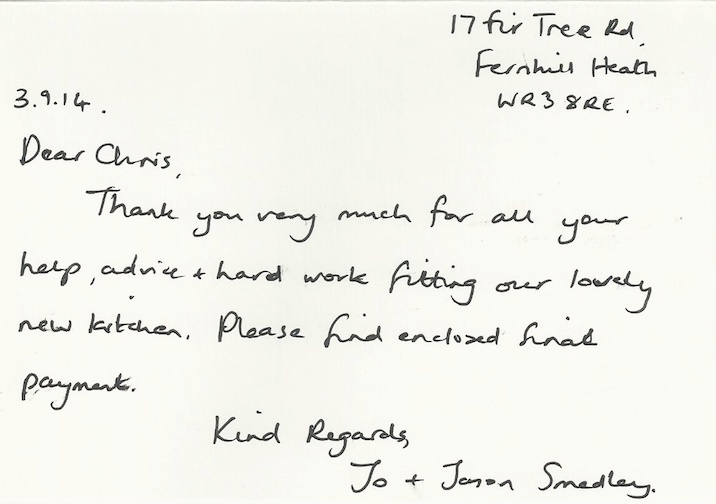 17 Fir Tree Rd,
Fernhill Heath
WR3 8RE.
3.9.14.
Dear Chris,
Thank you very much for all your
help, advice + hard work fitting our lovely
new kitchen. Please find enclosed final
payment.
Kind Regards,
Jo + Jason Smedley.